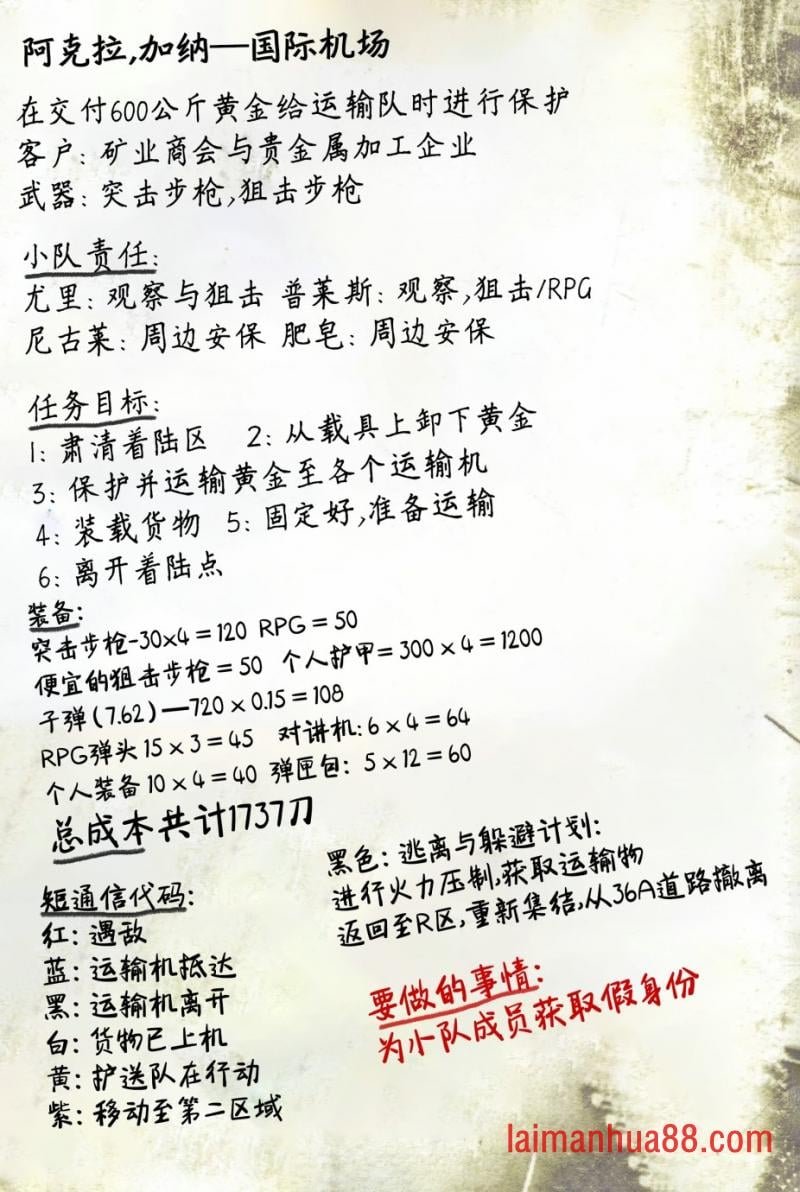 阿克拉,加纳—国际机场
在交付600公斤黄金给运输队时进行保护
客户: 矿业商会与贵金属加工企业
武器: 突击步枪,狙击步枪
小队责任:
尤里: 观察与狙击 普莱斯: 观察,狙击/RPG
尼古莱: 周边安保 肥皂: 周边安保
任务目标:
1: 肃清着陆区 2: 从载具上卸下黄金
3: 保护并运输黄金至各个运输机
4: 装载货物 5: 固定好,准备运输
6: 离开着陆点
装备:
突击步枪-30×4=120 RPG=50
便宜的狙击步枪=50 个人护甲=300×4=1200
子弹(7.62)—720×0.15=108
RPG弹头15×3=45 对讲机:6×4=64
个人装备10×4=40 弹匣包: 5×12=60
总成本共计1737刀
短通信代码:
红: 遇敌
蓝: 运输机抵达
黑: 运输机离开
白: 货物已上机
黄: 护送队在行动
紫: 移动至第二区域
黑色: 逃离与躲避计划:
进行火力压制,获取运输物
返回至R区,重新集结,从36A道路撤离
要做的事情:
为小队成员获取假身份
laimanhua88.com